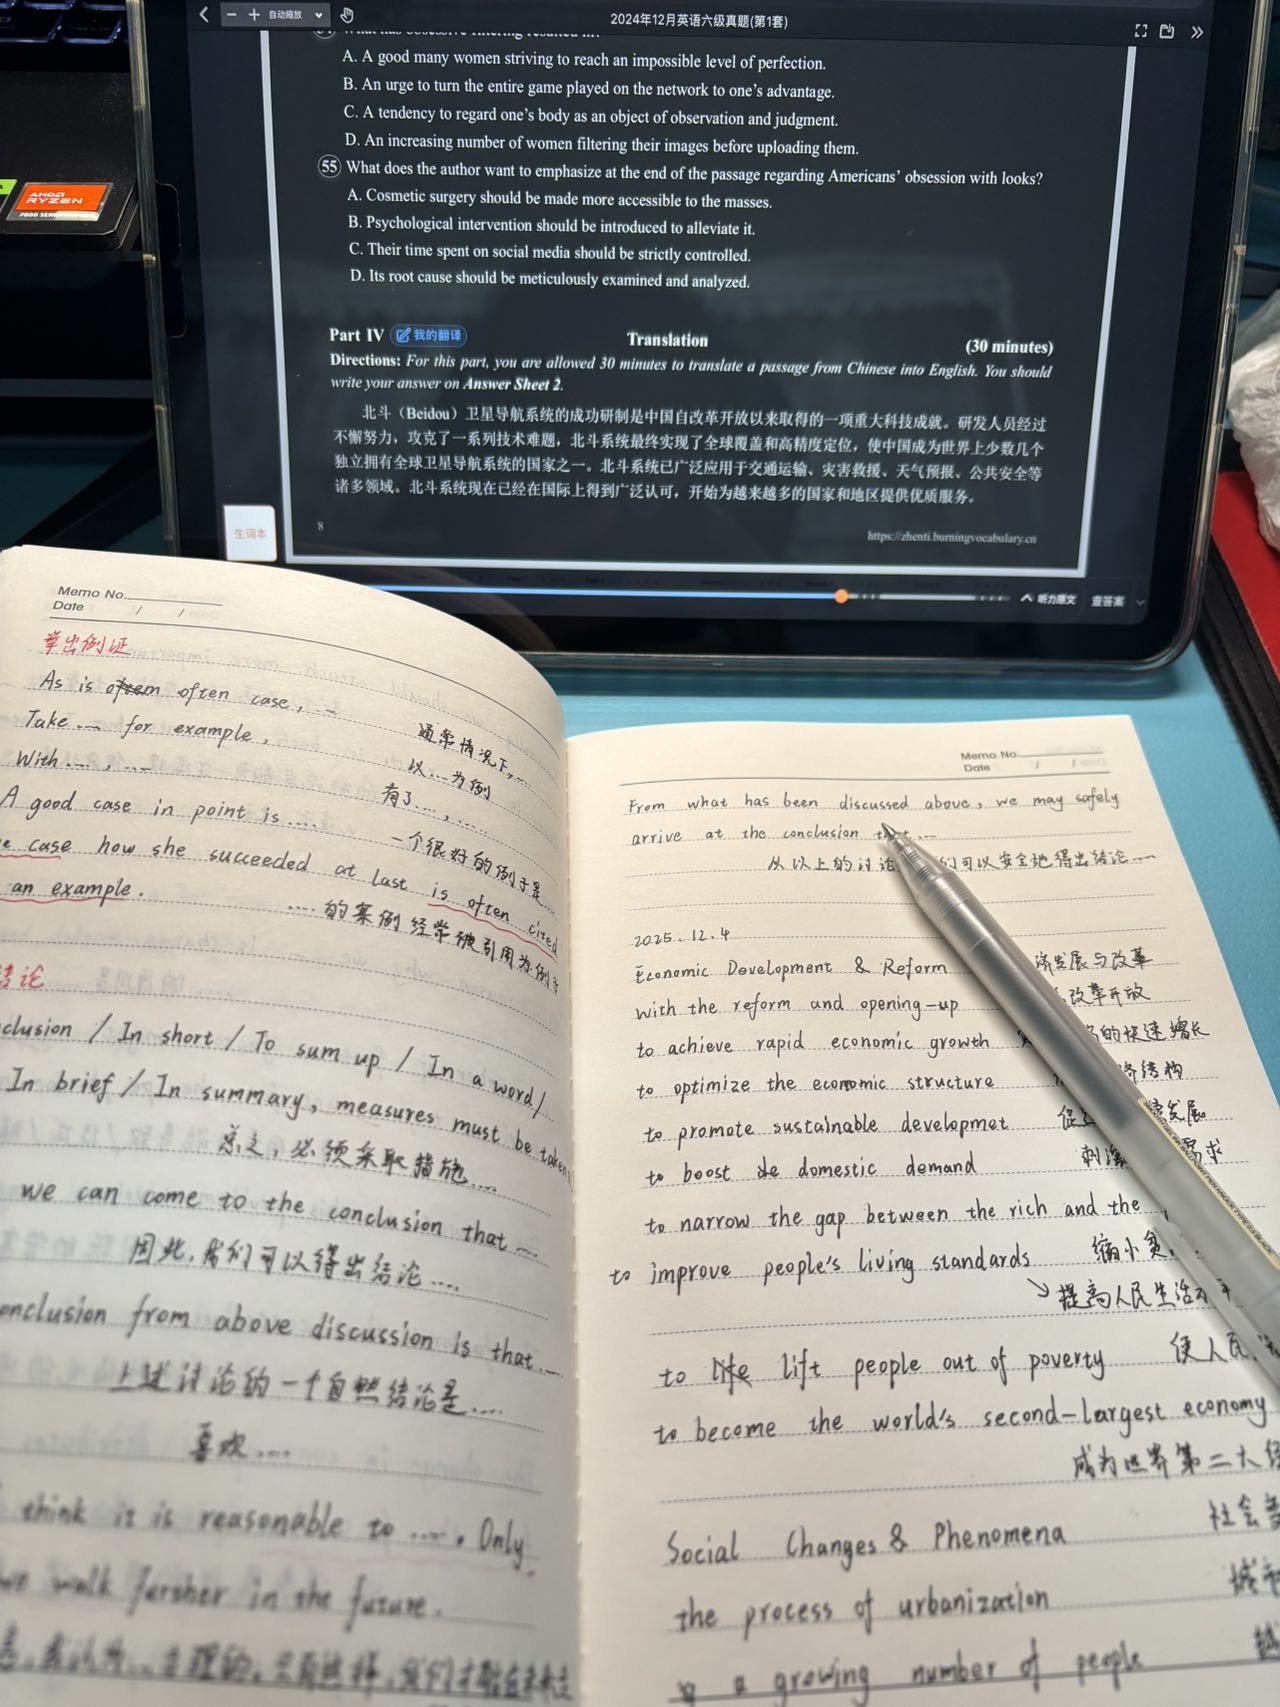 自动缩放
2024年12月英语六级真题(第1套)
A. A good many women striving to reach an impossible level of perfection.
B. An urge to turn the entire game played on the network to one's advantage.
C. A tendency to regard one's body as an object of observation and judgment.
D. An increasing number of women filtering their images before uploading them.
55 What does the author want to emphasize at the end of the passage regarding Americans' obsession with looks?
A. Cosmetic surgery should be made more accessible to the masses.
B. Psychological intervention should be introduced to alleviate it.
C. Their time spent on social media should be strictly controlled.
D. Its root cause should be meticulously examined and analyzed.
Part IV 我的翻译 Translation (30 minutes)
Directions: For this part, you are allowed 30 minutes to translate a passage from Chinese into English. You should
write your answer on Answer Sheet 2.
北斗（Beidou）卫星导航系统的成功研制是中国自改革开放以来取得的一项重大科技成就。研发人员经过
不懈努力，攻克了一系列技术难题，北斗系统最终实现了全球覆盖和高精度定位，使中国成为世界上少数几个
独立拥有全球卫星导航系统的国家之一。北斗系统已广泛应用于交通运输、灾害救援、天气预报、公共安全等
诸多领域。北斗系统现在已经在国际上得到广泛认可，开始为越来越多的国家和地区提供优质服务。
生词本
8
https://zhenti.burningvocabulary.cn
听力原文 查答案
AMD
RYZEN
Memo No.
Date / /
举出例证
As is often case, ...
通常情况下, ...
Take ... for example,
以...为例
With ..., ...
有了..., ...
A good case in point is ....
一个很好的例子是...
case how she succeeded at last is often cited
an example.
....的案例经常被引用为例子
结论
clusion / In short / To sum up / In a word /
In brief / In summary, measures must be taken
总之, 必须采取措施....
we can come to the conclusion that ...
因此, 我们可以得出结论....
onclusion from above discussion is that...
上述讨论的一个自然结论是....
喜欢....
think it is reasonable to .... . Only
we walk farsher in the future.
Memo No.
Date / /
From what has been discussed above, we may safely
arrive at the conclusion
从以上的讨论 们可以安全地得出结论...
2025.12.4
Economic Development & Reform 济发展与改革
with the reform and opening-up 改革开放
to achieve rapid economic growth 的快速增长
to optimize the economic structure 结构
to promote sustainable developmet 发展
to boost de domestic demand 刺 需求
to narrow the gap between the rich and the
缩小贫
to improve people's living standards
提高人民生活水
to life lift people out of poverty 使人民
to become the world's second-largest economy
成为世界第二大经
Social Changes & Phenomena 社会
the process of urbanization 城市
a growing number of people 越